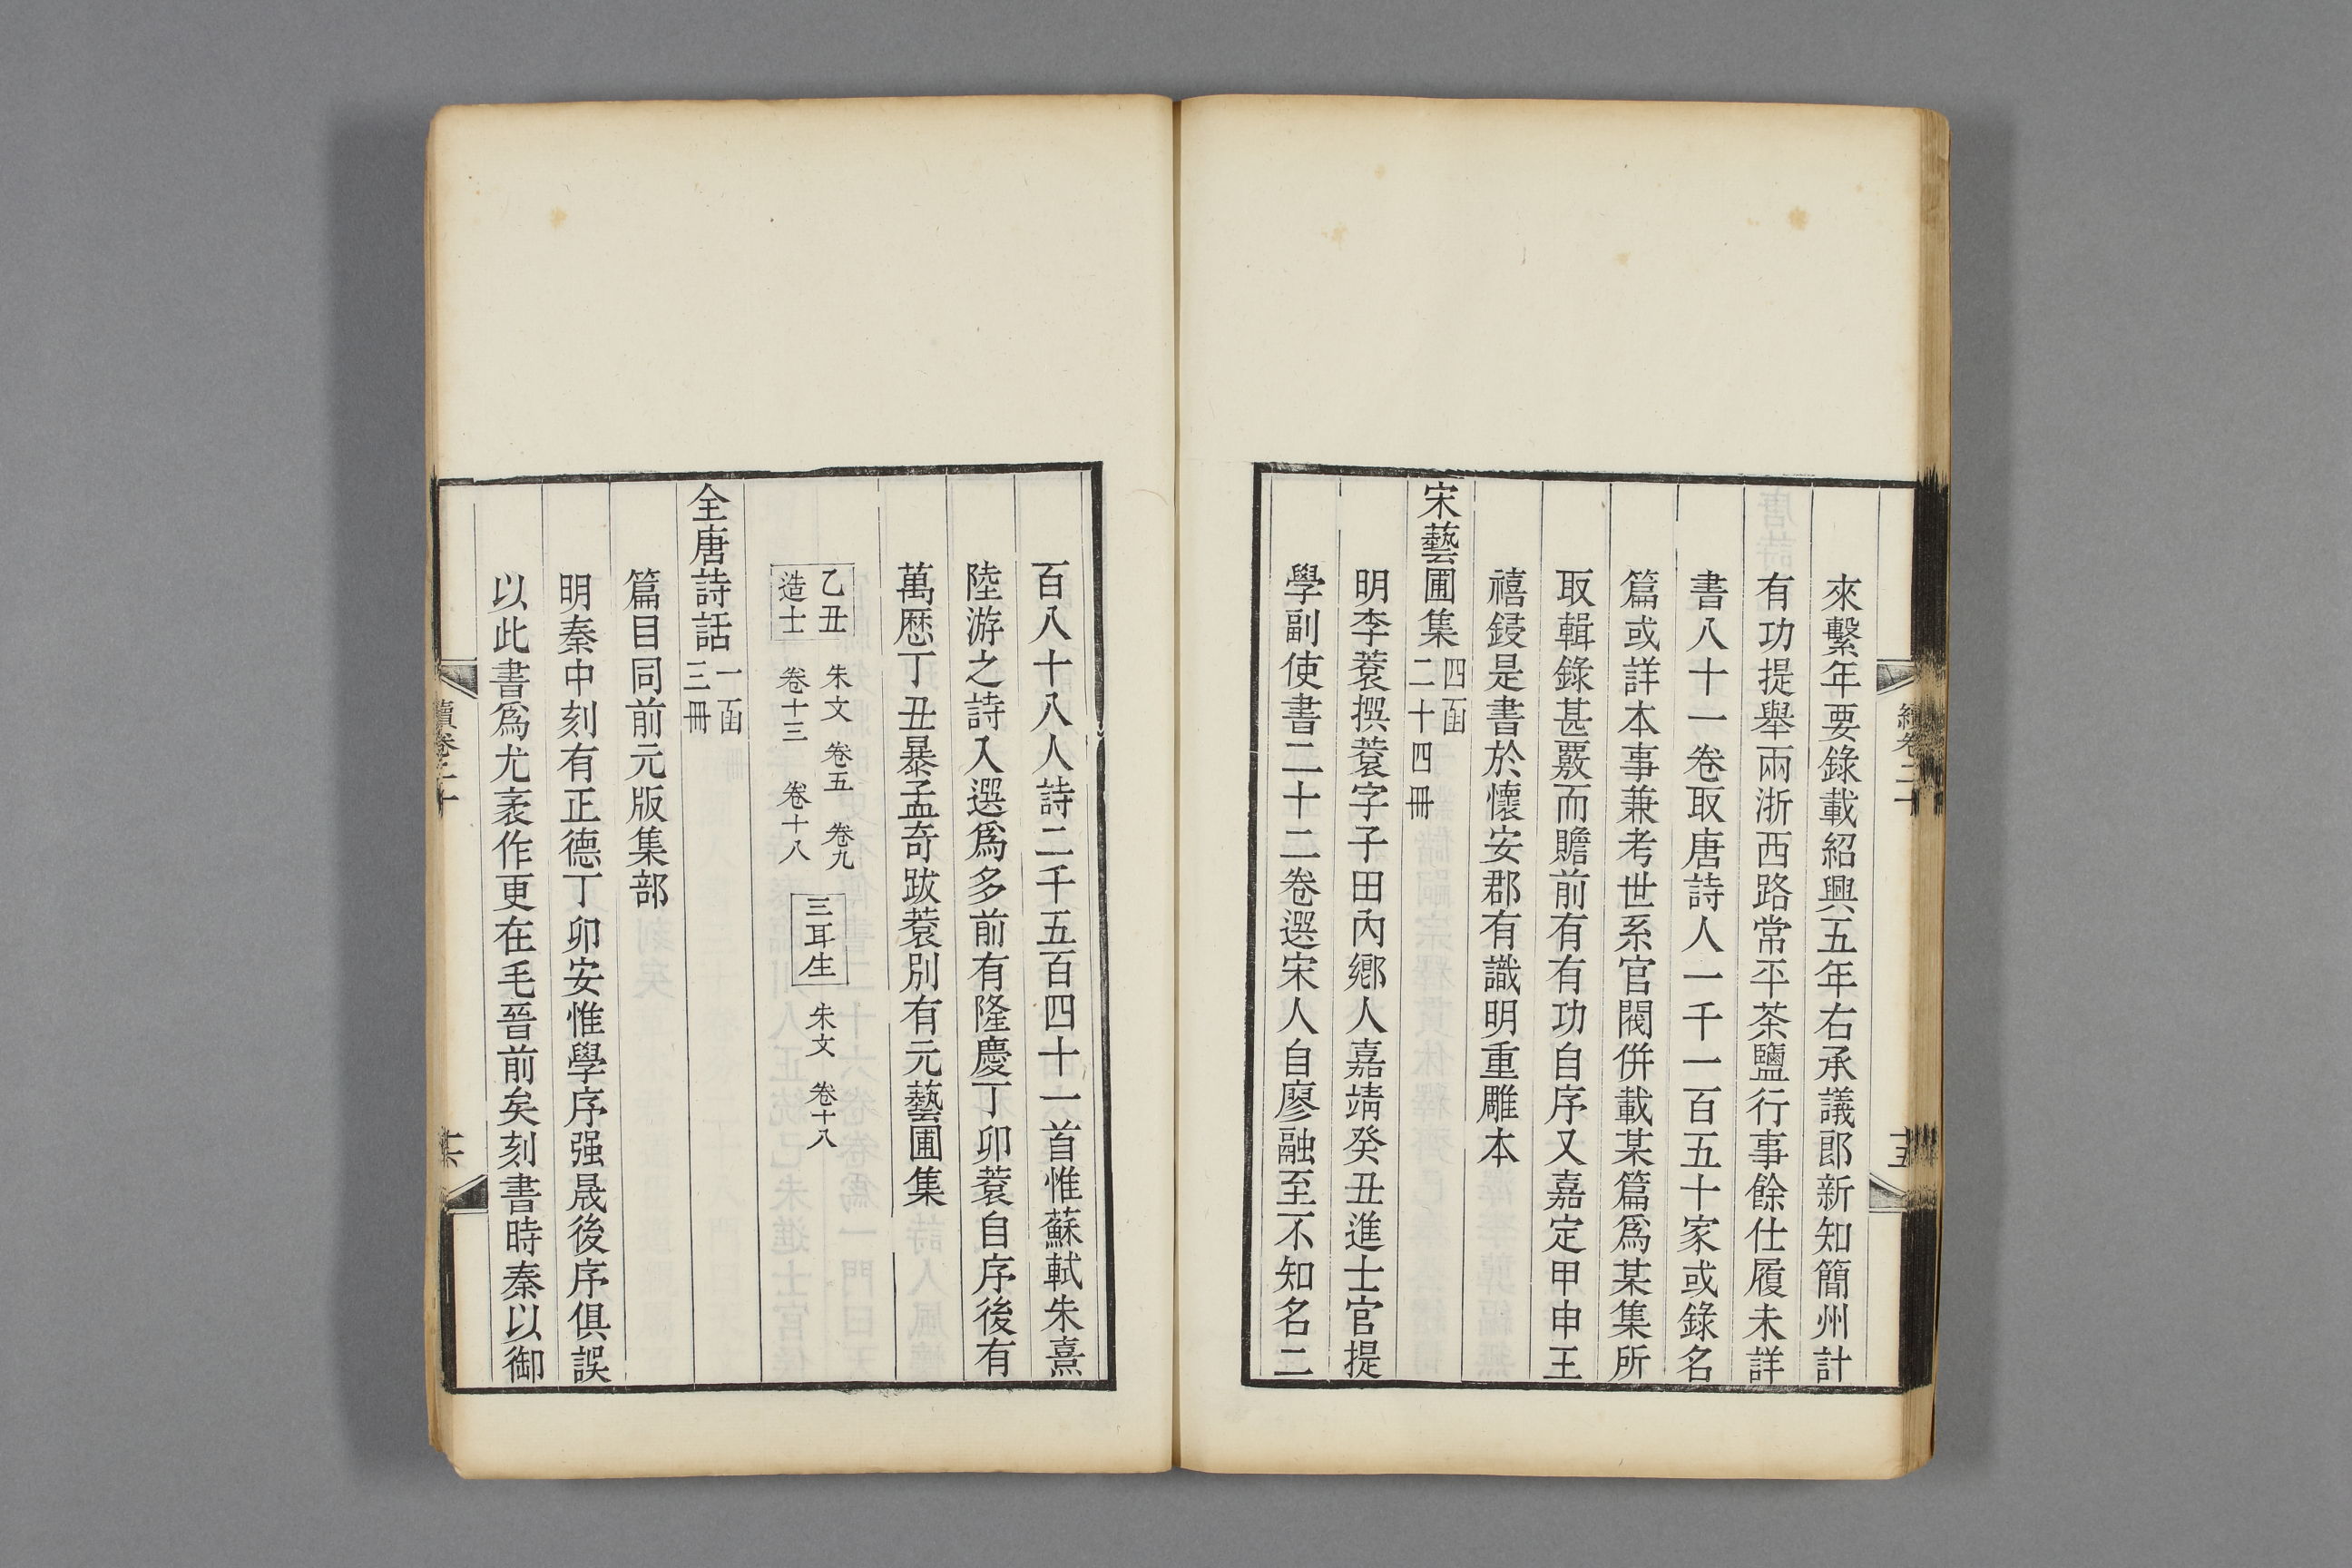 來繫年要錄載紹興五年右承議郎新知簡州計
有功提舉兩浙西路常平茶鹽行事餘仕履未詳
書八十一卷取唐詩人一千一百五十家或錄名
篇或詳本事兼考世系官閥併載某篇爲某集所
取輯錄甚覈而贍前有有功自序又嘉定甲申王
禧鋟是書於懷安郡有識明重雕本
宋藝圃集 四函
二十四冊
明李蓘撰蓘字子田內鄉人嘉靖癸丑進士官提
學副使書二十二卷選宋人自廖融至不知名二
百八十八人詩二千五百四十一首惟蘇軾朱熹
陸游之詩入選爲多前有隆慶丁卯蓘自序後有
萬厯丁丑暴孟奇跋蓘別有元藝圃集
乙丑
造士
朱文 卷五 卷九
卷十三 卷十八
三耳生
朱文 卷十八
全唐詩話 一函
三冊
篇目同前元版集部
明秦中刻有正德丁卯安惟學序强晟後序俱誤
以此書爲尤袤作更在毛晉前矣刻書時秦以御
續卷二十
十五
續卷二十
十六